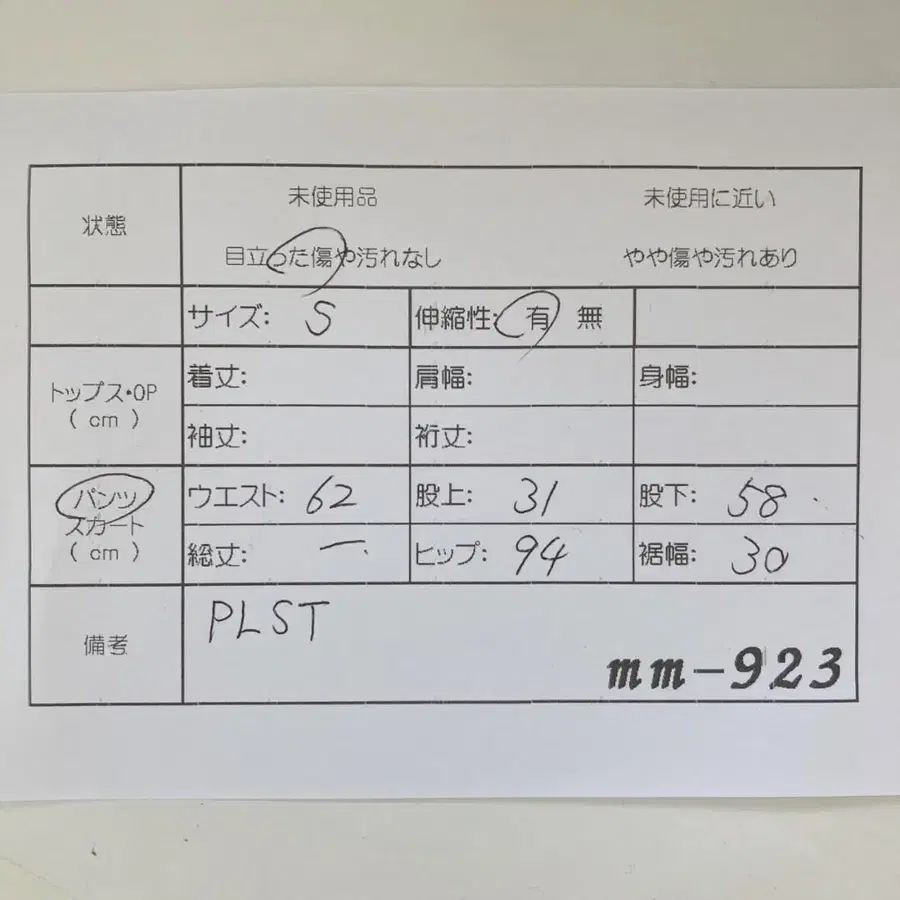 未使用品 未使用に近い
状態
目立った傷や汚れなし やや傷や汚れあり
サイズ: S 伸縮性: 有 無
着丈: 肩幅: 身幅:
トップス・OP
( cm )
袖丈: 裄丈:
パンツ ウエスト: 62 股上: 31 股下: 58
スカート
( cm ) 総丈: 一 ヒップ: 94 裾幅: 30
PLST
備考
mm-923